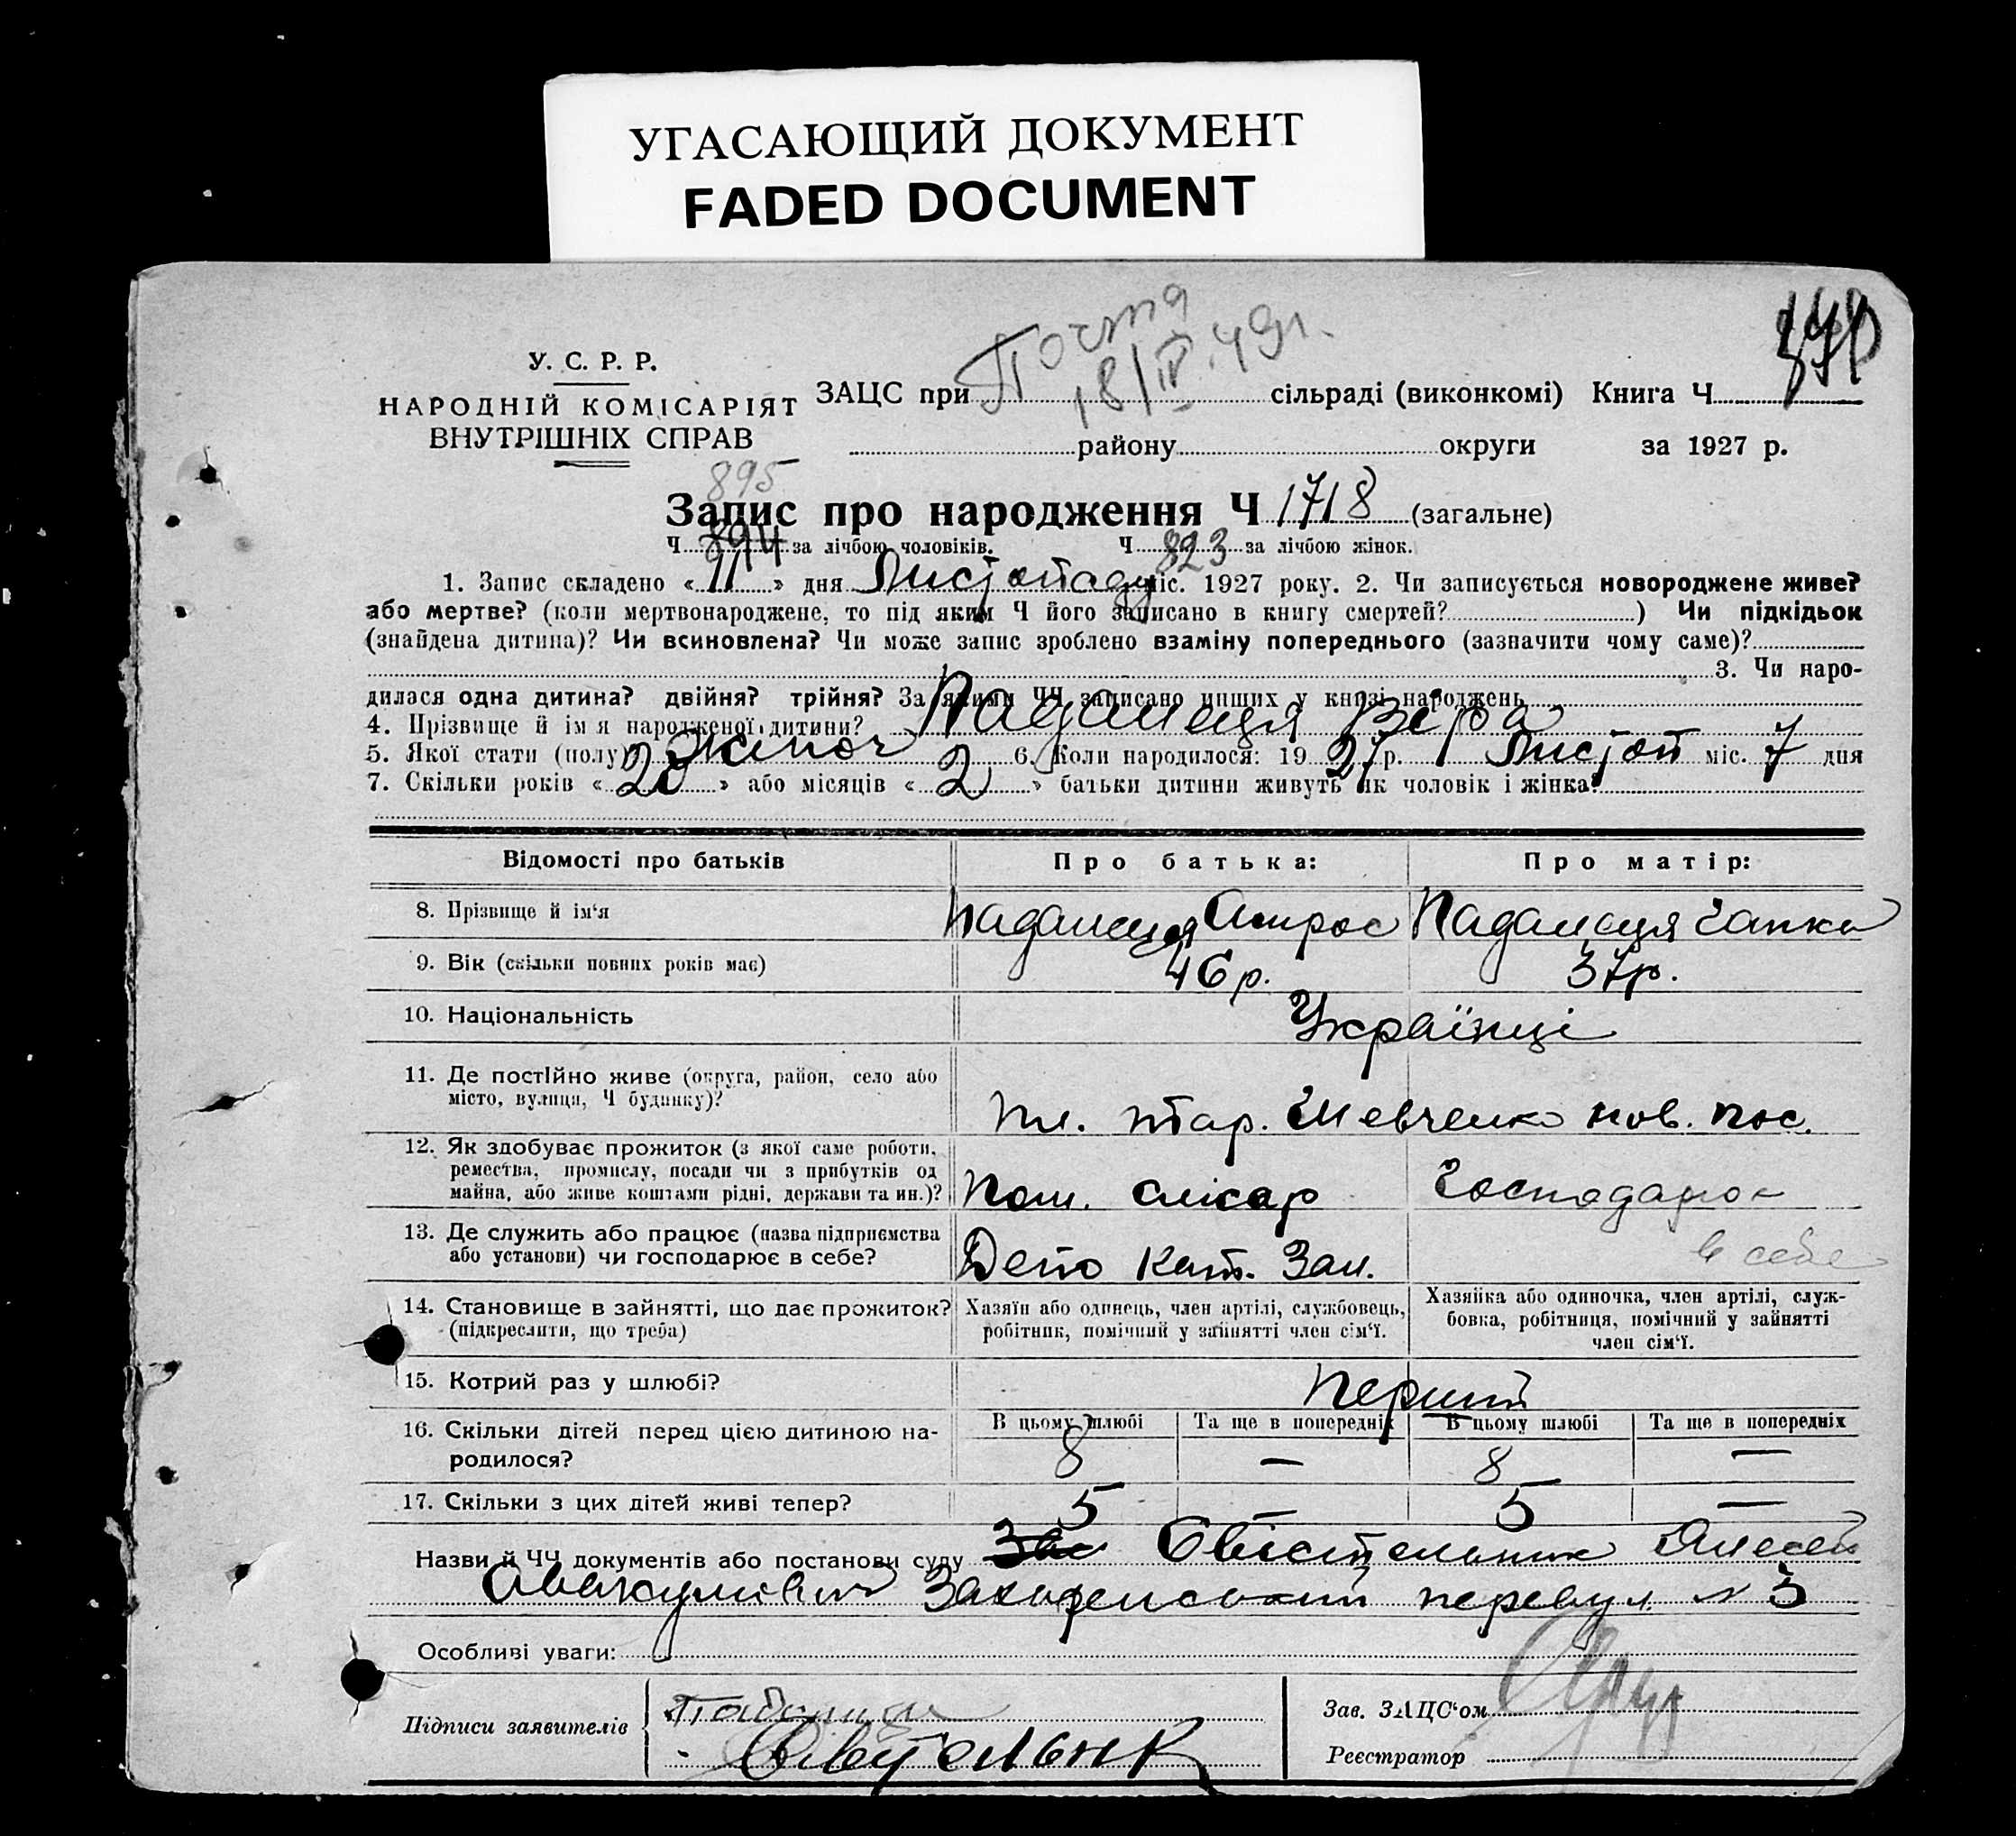 УГАСАЮЩИЙ ДОКУМЕНТ
FADED DOCUMENT
Почта
18/IV.49г.
У. С. Р. Р.
НАРОДНІЙ КОМІСАРІЯТ
ВНУТРІШНІХ СПРАВ
ЗАЦС при сільраді (виконкомі) Книга Ч.
району округи за 1927 р.
895
Запис про народження Ч 1718 (загальне)
Ч 894 за лічбою чоловіків. Ч 823 за лічбою жінок.
1. Запис складено « 11 » дня Листопаду міс. 1927 року. 2. Чи записується новороджене живе?
або мертве? (коли мертвонароджене, то під яким Ч його записано в книгу смертей? ) Чи підкідьок
(знайдена дитина)? Чи всиновлена? Чи може запис зроблено взаміну попереднього (зазначити чому саме)?
3. Чи наро-
дилася одна дитина? двійня? трійня? За якими ЧЧ записано инших у книзі народжень
4. Прізвище й ім я народженої дитини? Падалиця Віра
5. Якої стати (полу) жіноч 6. Коли народилося: 19 27 р. Листоп міс. 7 дня
7. Скільки років « 20 » або місяців « 2 » батьки дитини живуть як чоловік і жінка?
Відомості про батьків Про батька: Про матір:
8. Прізвище й ім‘я Падалиця Амрос Падалиця Ганна
9. Вік (скільки повних років має) 46 р. 37 р.
10. Національність Українці
11. Де постійно живе (округа, район, село або
місто, вулиця, Ч будинку)?
пл. Тар. Шевченко нов. пос.
12. Як здобуває прожиток (з якої саме роботи,
ремества, промислу, посади чи з прибутків од
майна, або живе коштами рідні, держави та ин.)?
пом. слісар Господарює
13. Де служить або працює (назва підприємства
або установи) чи господарює в себе?
Депо Кат. Зал. в себе
14. Становище в зайнятті, що дає прожиток?
(підкреслити, що треба)
Хазяїн або одинець, член артілі, службовець,
робітник, помічний у зайнятті член сім‘ї.
Хазяйка або одиночка, член артілі, служ-
бовка, робітниця, помічний у зайнятті
член сім‘ї.
15. Котрий раз у шлюбі? Перший
16. Скільки дітей перед цією дитиною на-
родилося?
В цьому шлюбі Та ще в попередніх В цьому шлюбі Та ще в попередніх
8 — 8 —
17. Скільки з цих дітей живі тепер? 5 — 5 —
Назви й ЧЧ документів або постанови суду
перевул. № 3
Особливі уваги:
Підписи заявителів
Падалиця
Зав. ЗАЦС‘ом
Реєстратор